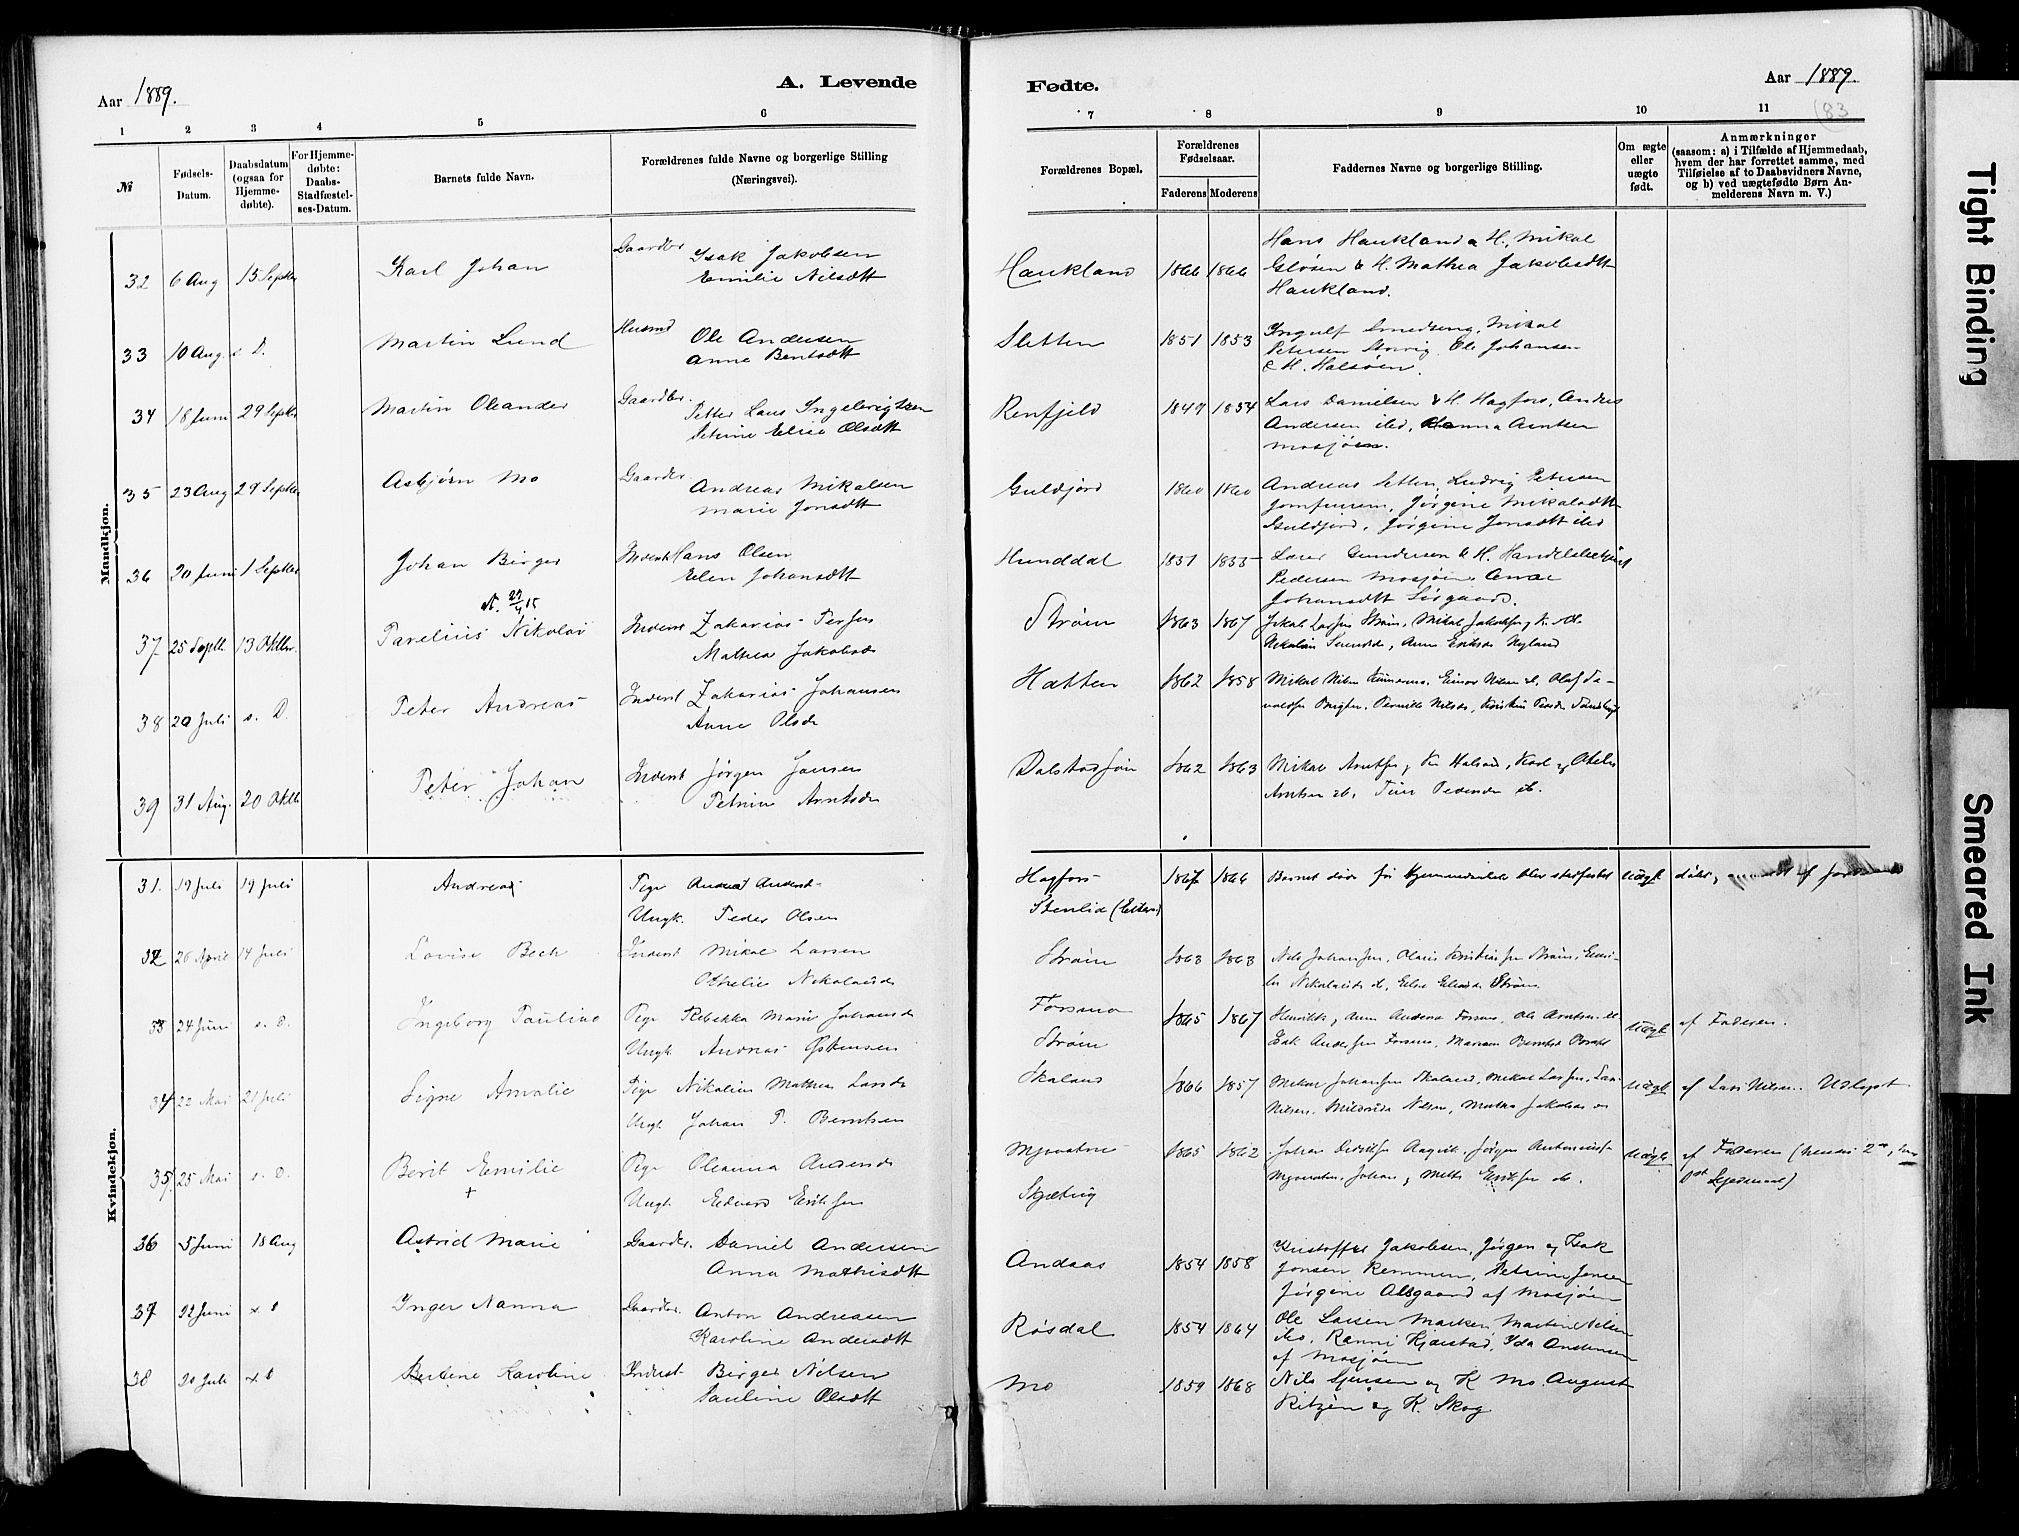 Aar 1889.
A. Levende
1 2 3 4 5 6
№
Fødsels-Datum.
Daabsdatum (ogsaa for Hjemme-døbte).
For Hjemme-døbte: Daabs-Stadfæstel-ses-Datum.
Barnets fulde Navn.
Forældrenes fulde Navne og borgerlige Stilling (Næringsvei).
Mandkjøn.
32 6 Aug 15 Septbr Karl Johan Gaardbr Isak Jakobsen
Emilie Nilsdtt
33 10 Aug. s. D. Martin Lund Husmd Ole Andersen
Anne Berntsdtt
34 18 Juni 29 Septbr Martin Oleander Gaardbr. Petter Laus Ingebrigtsen
Petrine Elise Olsdtt
35 23 Aug 29 Septbr Asbjørn Mo Gaardbr Andreas Mikalsen
Marie Jonsdtt
36 20 Juni 1 Septbr Johan Birger Inderst Hans Olsen
Elen Johansdtt
37 25 Septb. 13 Oktbr. Parelius Nikolai Inderst Zakarias Persen
Mathea Jakobsdr
38 20 Juli s. D. Peter Andreas Inderst Zakarias Johansen
Anne Olsdr
39 31 Aug. 20 Oktb Peter Johan Inderst Jørgen Jansen
Petrine Arntsdr
Kvindekjøn.
31. 19 Juli 19 Juli Andrea Pige Andrea Andersd.
Ungk. Peder Olsen
32 26 April 14 Juli Lovise Bech Inderst Mikal Larsen
Othelie Nikolaisdr
33 24 Juni s. D. Ingeborg Pauline Pige Rebekka Marie Johansdr
Ungk. Andreas Østensen
34 22 Mai 21 Juli Signe Amalie Pige Nikoline Mathea Larsdr
Ungk. Johan P. Berntsen
35 25 Mai s. D. Berit Emilie Pige Oleanna Andersdr
+
Ungk Edvard Eriksen
36 5 Juni 18 Aug Astrid Marie Gaardbr. Daniel Andersen
Anna Mathisdtt
37 22 Juni Inger Nanna Gaardbr. Anton Andreasen
Karoline Andersdtt
38 20 Juli Bertine Karoline Inderst Birger Nilsen
Pauline Olsdtt
Fødte.
Aar 1889.
(83
7 8 9 10 11
Forældrenes Bopæl.
Forældrenes Fødselsaar.
Faderens Moderens
Faddernes Navne og borgerlige Stilling.
Om ægte eller uægte født.
Anmærkninger
(saasom: a) i Tilfælde af Hjemmedaab,
hvem der har forrettet samme, med
Tilføielse af to Daabsvidners Navne,
og b) ved uægtefødte Børn An-
melderens Navn m. V.)
Haukland 1866 1866 Hans Haukland & H. Mikal
Gløsen & H. Mathea Jakobsdtt
Haukland.
Sletten 1851 1853 Ingulf Smedseng, Mikal
Petersen Ole Johansen
& H. Halsøen.
Renfjeld 1849 1854 Lars Danielsen & H. Hagfors, Anders
Andersen ibd, Hanna Arntsen
Mosjøen.
Guldfjord 1860 1860 Andreas Sletten, Ludvig Petersen
Jomfruerem, Jørgine Mikalsdtt
Guldfjord, Jørgine Jonsdtt ibd
Hunddal 1831 1835 Gundersen & H. Handelsbetjent
Pedersen Mosjøen,
Johansdtt Sørgaard.
Strøm 1863 1867 Jakob Larsen Strøm, Mikal Jakobsen,
Anne Eriksdr Nyland
Hatten 1862 1858 Mikal Nilsen Einar Nilsen ib. Olaf
Pernille Nilsdr,
Dolstadsjøen 1862 1863 Mikal Arntsen, Halsøen, Karl og Othelie
Arntsen ib, Pedersdr ib.
Hagfors 1867 1866 Barnet døde før Hjemmedaaben blev stadfæstet Uægte døbt,
Stenlid (Elteren)
Strøm 1863 1863 Nils Johansen, Olaus Kristiansen Strøm,
Nikolaisdr ib, Strøm.
Forsmo 1865 1867 Henrik, Anne Andersdr Forsmo, Ole Arntsen ib Uægte af Faderen.
Strøm Isak Andersen Forsmo, Marian Berntsd
Skaland 1866 1857 Mikal Johansen Skaland, Mikal Larsen, Lars Uægte af Lars Nilsen. Udlagt
Nilsen, Mildrida Nilsen, Martha Jakobsdr
1865 1862 Johan Jørgen Uægte af Faderen (hennes 2den, hans
Johan, Mette Eriksen ib. 1st Leiermaal)
Andaas 1854 1858 Kristoffer Jakobsen, Jørgen og Isak
Jonsen Remmen, Petrine Jensen
Jørgine Alsgaard af Mosjøen
Røsdal 1854 1864 Ole Larsen Marken, Martin Nilsen
ibd. Ranni Kjærstad, Ida Andersen
af Mosjøen
Mo 1859 1868 Nils og K Mo. August
Ritzén og K. Skog
Tight Binding
Smeared Ink